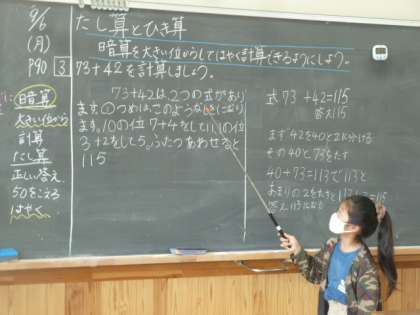 9/6
(月)
P90
3
たし算とひき算
暗算を大きい位からしてはやく計算できるようにしよう。
73+42を計算しましょう。
暗算
大きい位から
計算
たし算
正しい答え
50をこえる
はやく
73+42は2つの式があり
ます。①つめは、このような
ます。10の位 7+4をして11、1の位
3+2をして5。ふたつあわせると
115
式 73+42=115
答え115
まず42を40と2に分ける
その40と73をたす
40+73=113で113と
あまりの2をたすと
答え